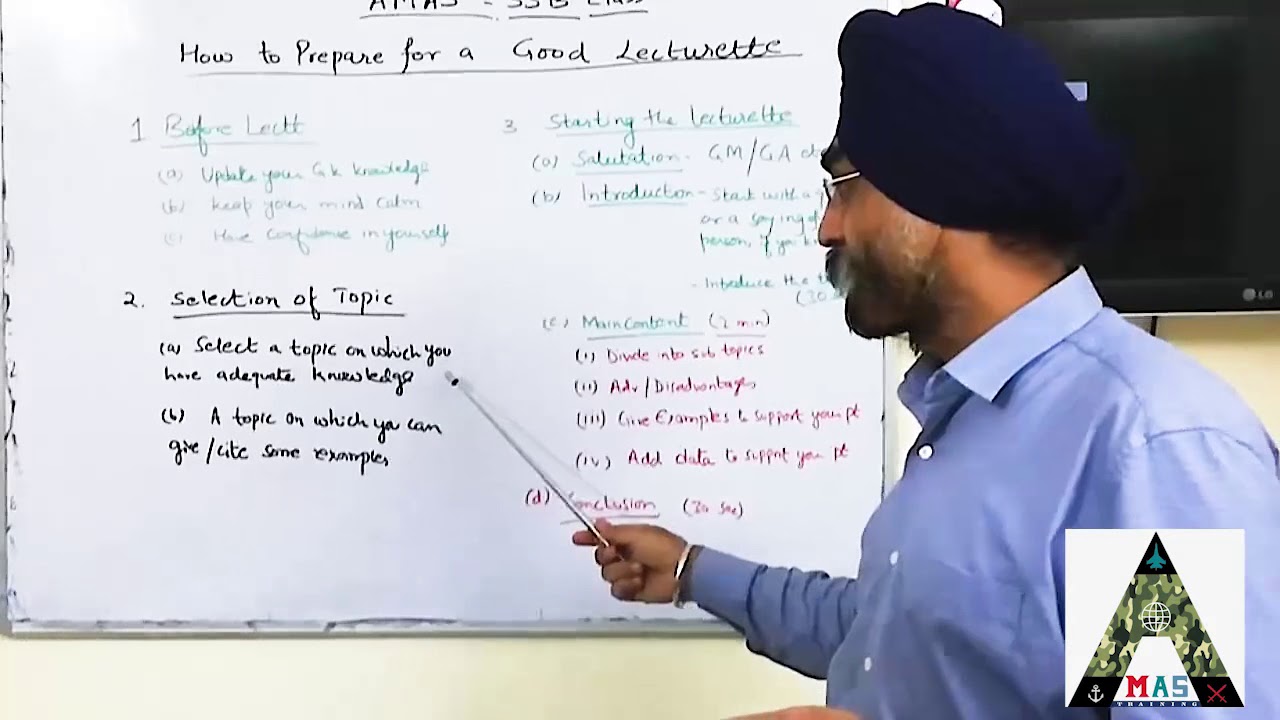 AMAS - SSB Class
How to Prepare for a Good Lecturette
1 Before Lectt
(a) Update your GK knowledge
(b) Keep your mind calm
(c) Have Confidence in yourself
2. Selection of Topic
(a) Select a topic on which you
have adequate knowledge
(b) A topic on which you can
give/cite some examples
3 Starting the lecturette
(a) Salutation - GM/GA
(b) Introduction - Start with a
or a saying of
person, if you
- Introduce the
(30
(c) Main Content (2 min)
(i) Divide into sub topics
(ii) Adv/Disadvantages
(iii) Give Examples to support your pt
(iv) Add data to support your pt
(d) Conclusion (30 sec)
LG
MAS
TRAINING